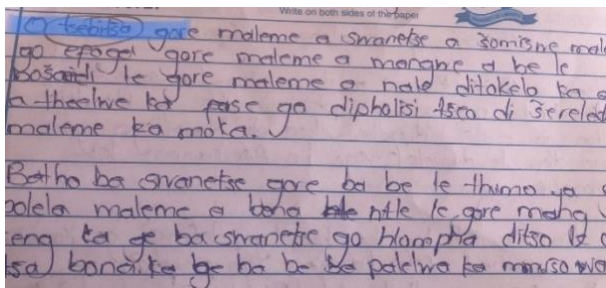 Write on both sides of the paper
O tšebitša gore maleme a swanetše a šomišwe
go epagel gore maleme a mangwe a be le
Bošaedi le gore maleme a nale ditokelo ka
a theelwe ka pase go dipholisi tšeo di šereled
maleme ka moka.
Batho ba swanetše gore ba be le thimo ya
polela maleme a bona ntle le gore mang
eng ka ba swanetše go hlompha ditšo le
tša bona ka ba be palelwa ke mmušo